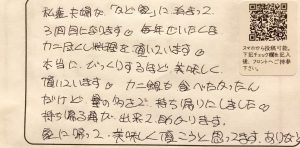 私達夫婦が「なと家」に泊まって
3回目になります。毎年忙しくは
カニづくし料理を頂いています。
本当に、びっくりするほど、美味しく
頂いています。カニ鍋も食べたかったん
だけど、量の多さで、持ち帰りしました。
持ち帰る事が、出来て助かります。
家に帰って、美味しく頂こうと思ってます。ありなと
スマホから投稿可能。
下記チェック欄を記入
後、フロントへご持参
下さい。